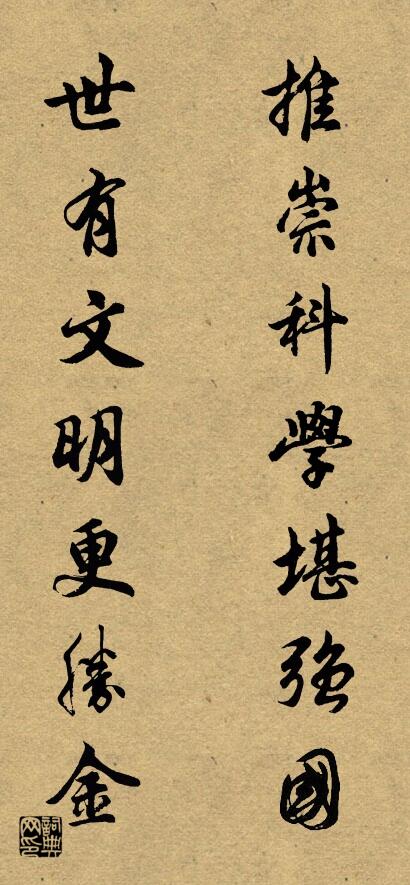 推崇科學堪强國
世有文明更勝金
詞典网印